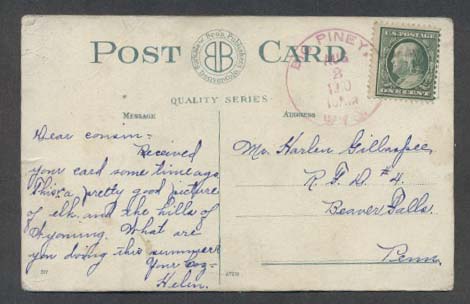 POST CARD
QUALITY SERIES
MESSAGE
ADDRESS
BIG PINEY,
AUG
3
WYO.
U.S. POSTAGE
ONE CENT
Dear cousin-
Received
your card some time ago
This a pretty good picture
of elk and the hills of
Wyoming. What are
you doing this summer
Your Coz-
Helen.
Mr. Harlen Gillespee,
R. F. D. #4.
Beaver Falls.
Penn.